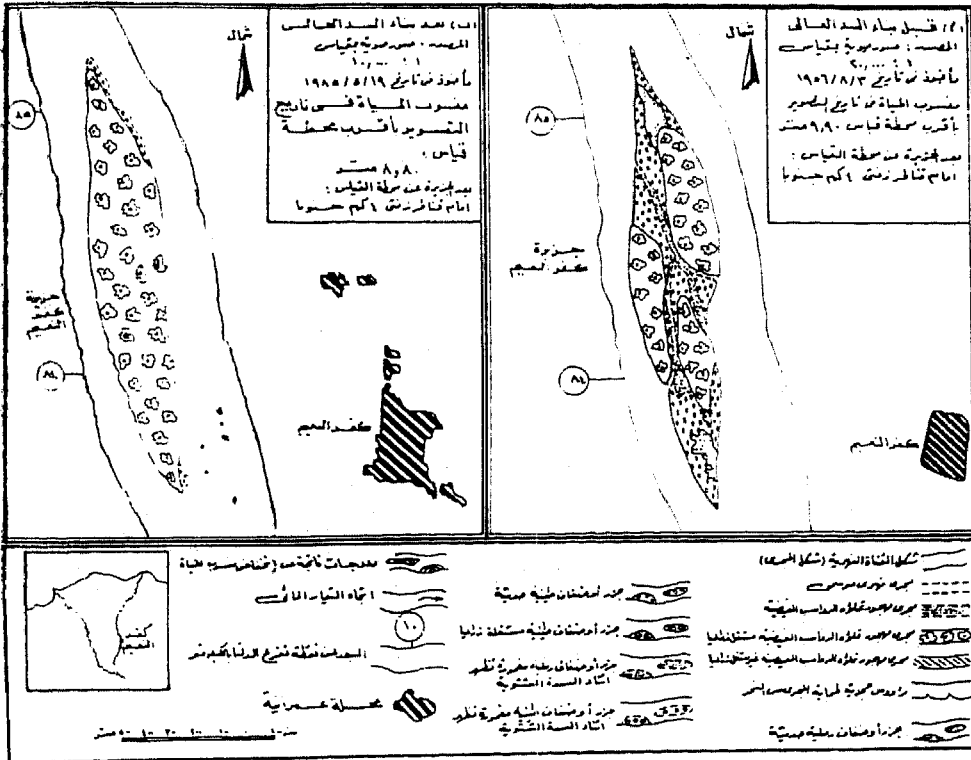 (أ) قبل بناء السد العالى
المصدر: صور جوية بمقياس
١ : ٢٠.٠٠٠
مأخوذ من تاريخ ١٩٥٦/٨/٣
منسوب المياة فى تاريخ التصوير
بأقرب محطة قياس ٩,٩٠ متر
بعد الجزيرة عن محطة القياس :
امام قناطر زفتى ١ كم جنوبا
شمال
٨٥
جزيرة
كفر النعيم
٨٤
كفر النعيم
(ب) بعد بناء السد العالى
المصدر : صور جوية بمقياس
١ : ١٠.٠٠٠
مأخوذ من تاريخ ١٩٨٥/٥/١٩
منسوب المياة فى تاريخ
التصوير بأقرب محطة
قياس :
٨,٨٠ متر
بعد الجزيرة عن محطة القياس :
امام قناطر زفتى ١ كم جنوبا
شمال
٨٥
جزيرة
كفر
النعيم
٨٤
كفر النعيم
شكل القناة النهرية (شكل المجرى)
مجرى نهرى موسمى
مجرى مهجور تملأه الرواسب الفيضية
مجرى مهجور تملأه الرواسب الفيضية مستغل زراعيا
مجرى مهجور تملأه الرواسب الفيضية غير مستغل زراعيا
رؤوس حجرية لحماية المجرى من النحر
جزر أو ضفاف رملية حديثة
جزر أو ضفاف طينية حديثة
جزر أو ضفاف طينية مستغلة زراعيا
جزر أو ضفاف رملية مغمورة تظهر
اثناء السدة الشتوية
جزر أو ضفاف طينية مغمورة تظهر
اثناء السدة الشتوية
مدرجات ناتجة عن إنخفاض منسوب المياة
اتجاه التيار المائى
١٠
البعد من نقطة تفرع الدلتا بالكيلو متر
محلة عمرانية
كفر
النعيم
متر